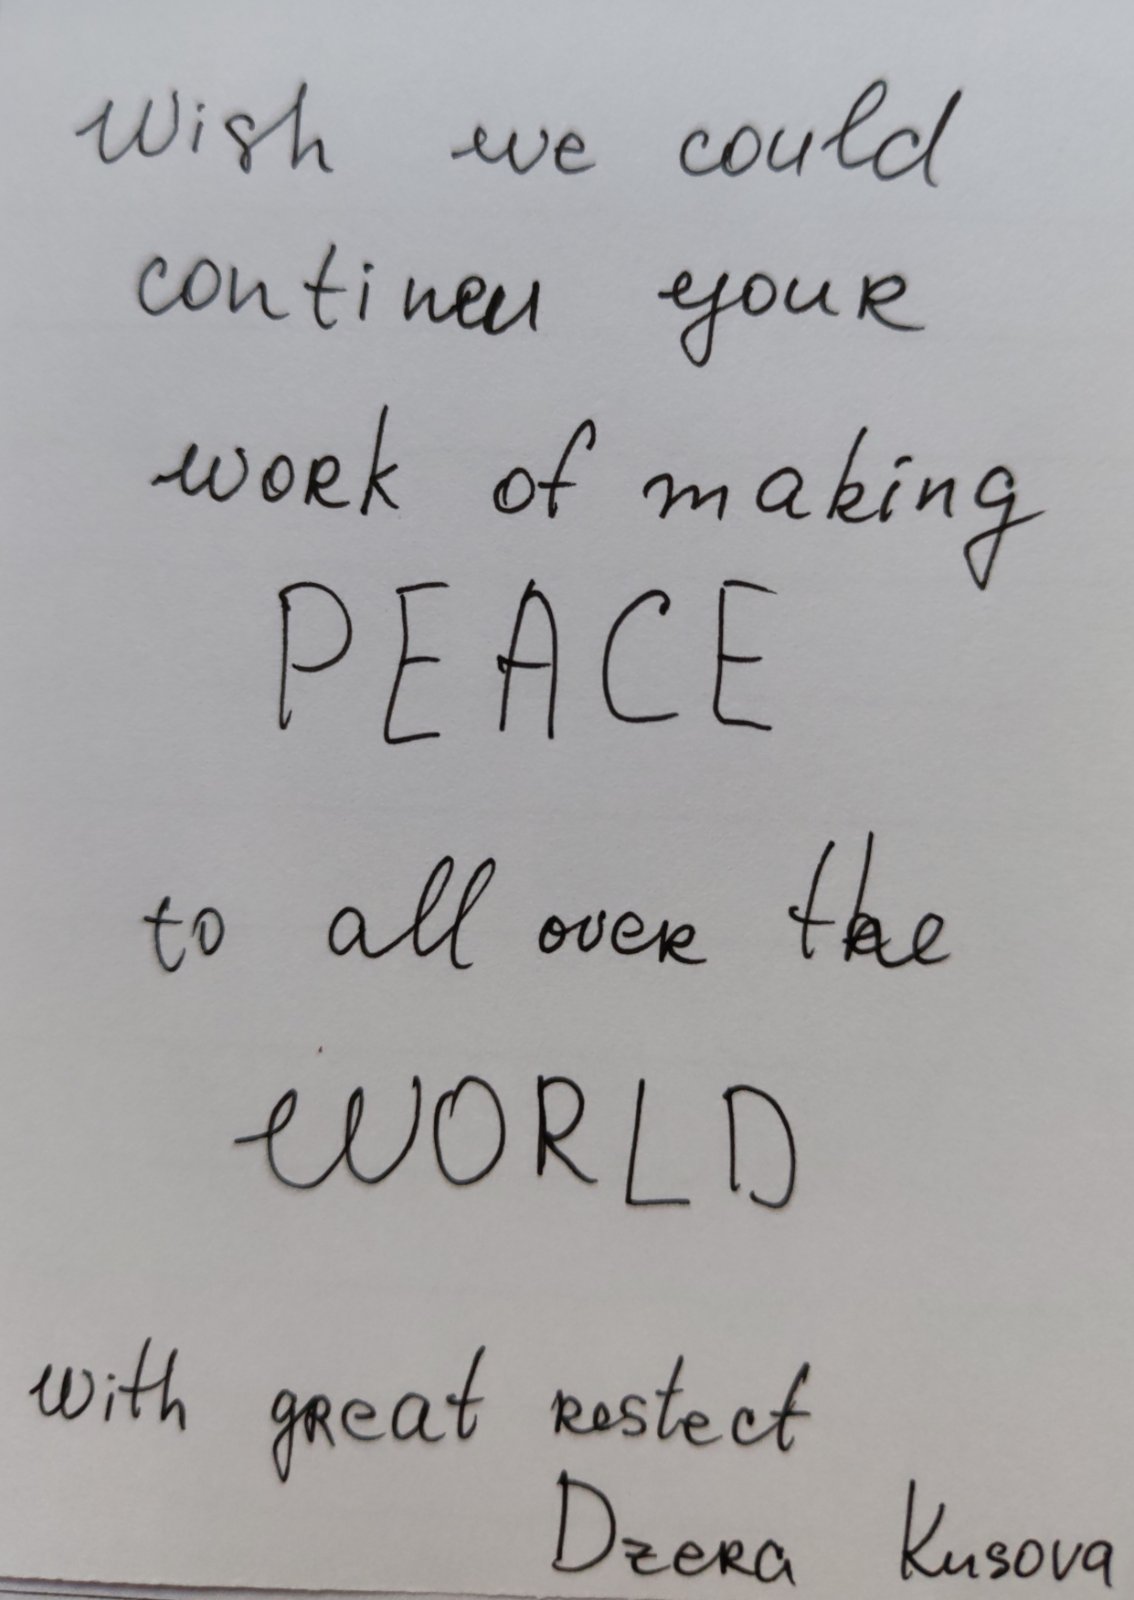 Wish we could
contineu your
work of making
PEACE
to all over the
WORLD
with great restect
Dzera Kusova